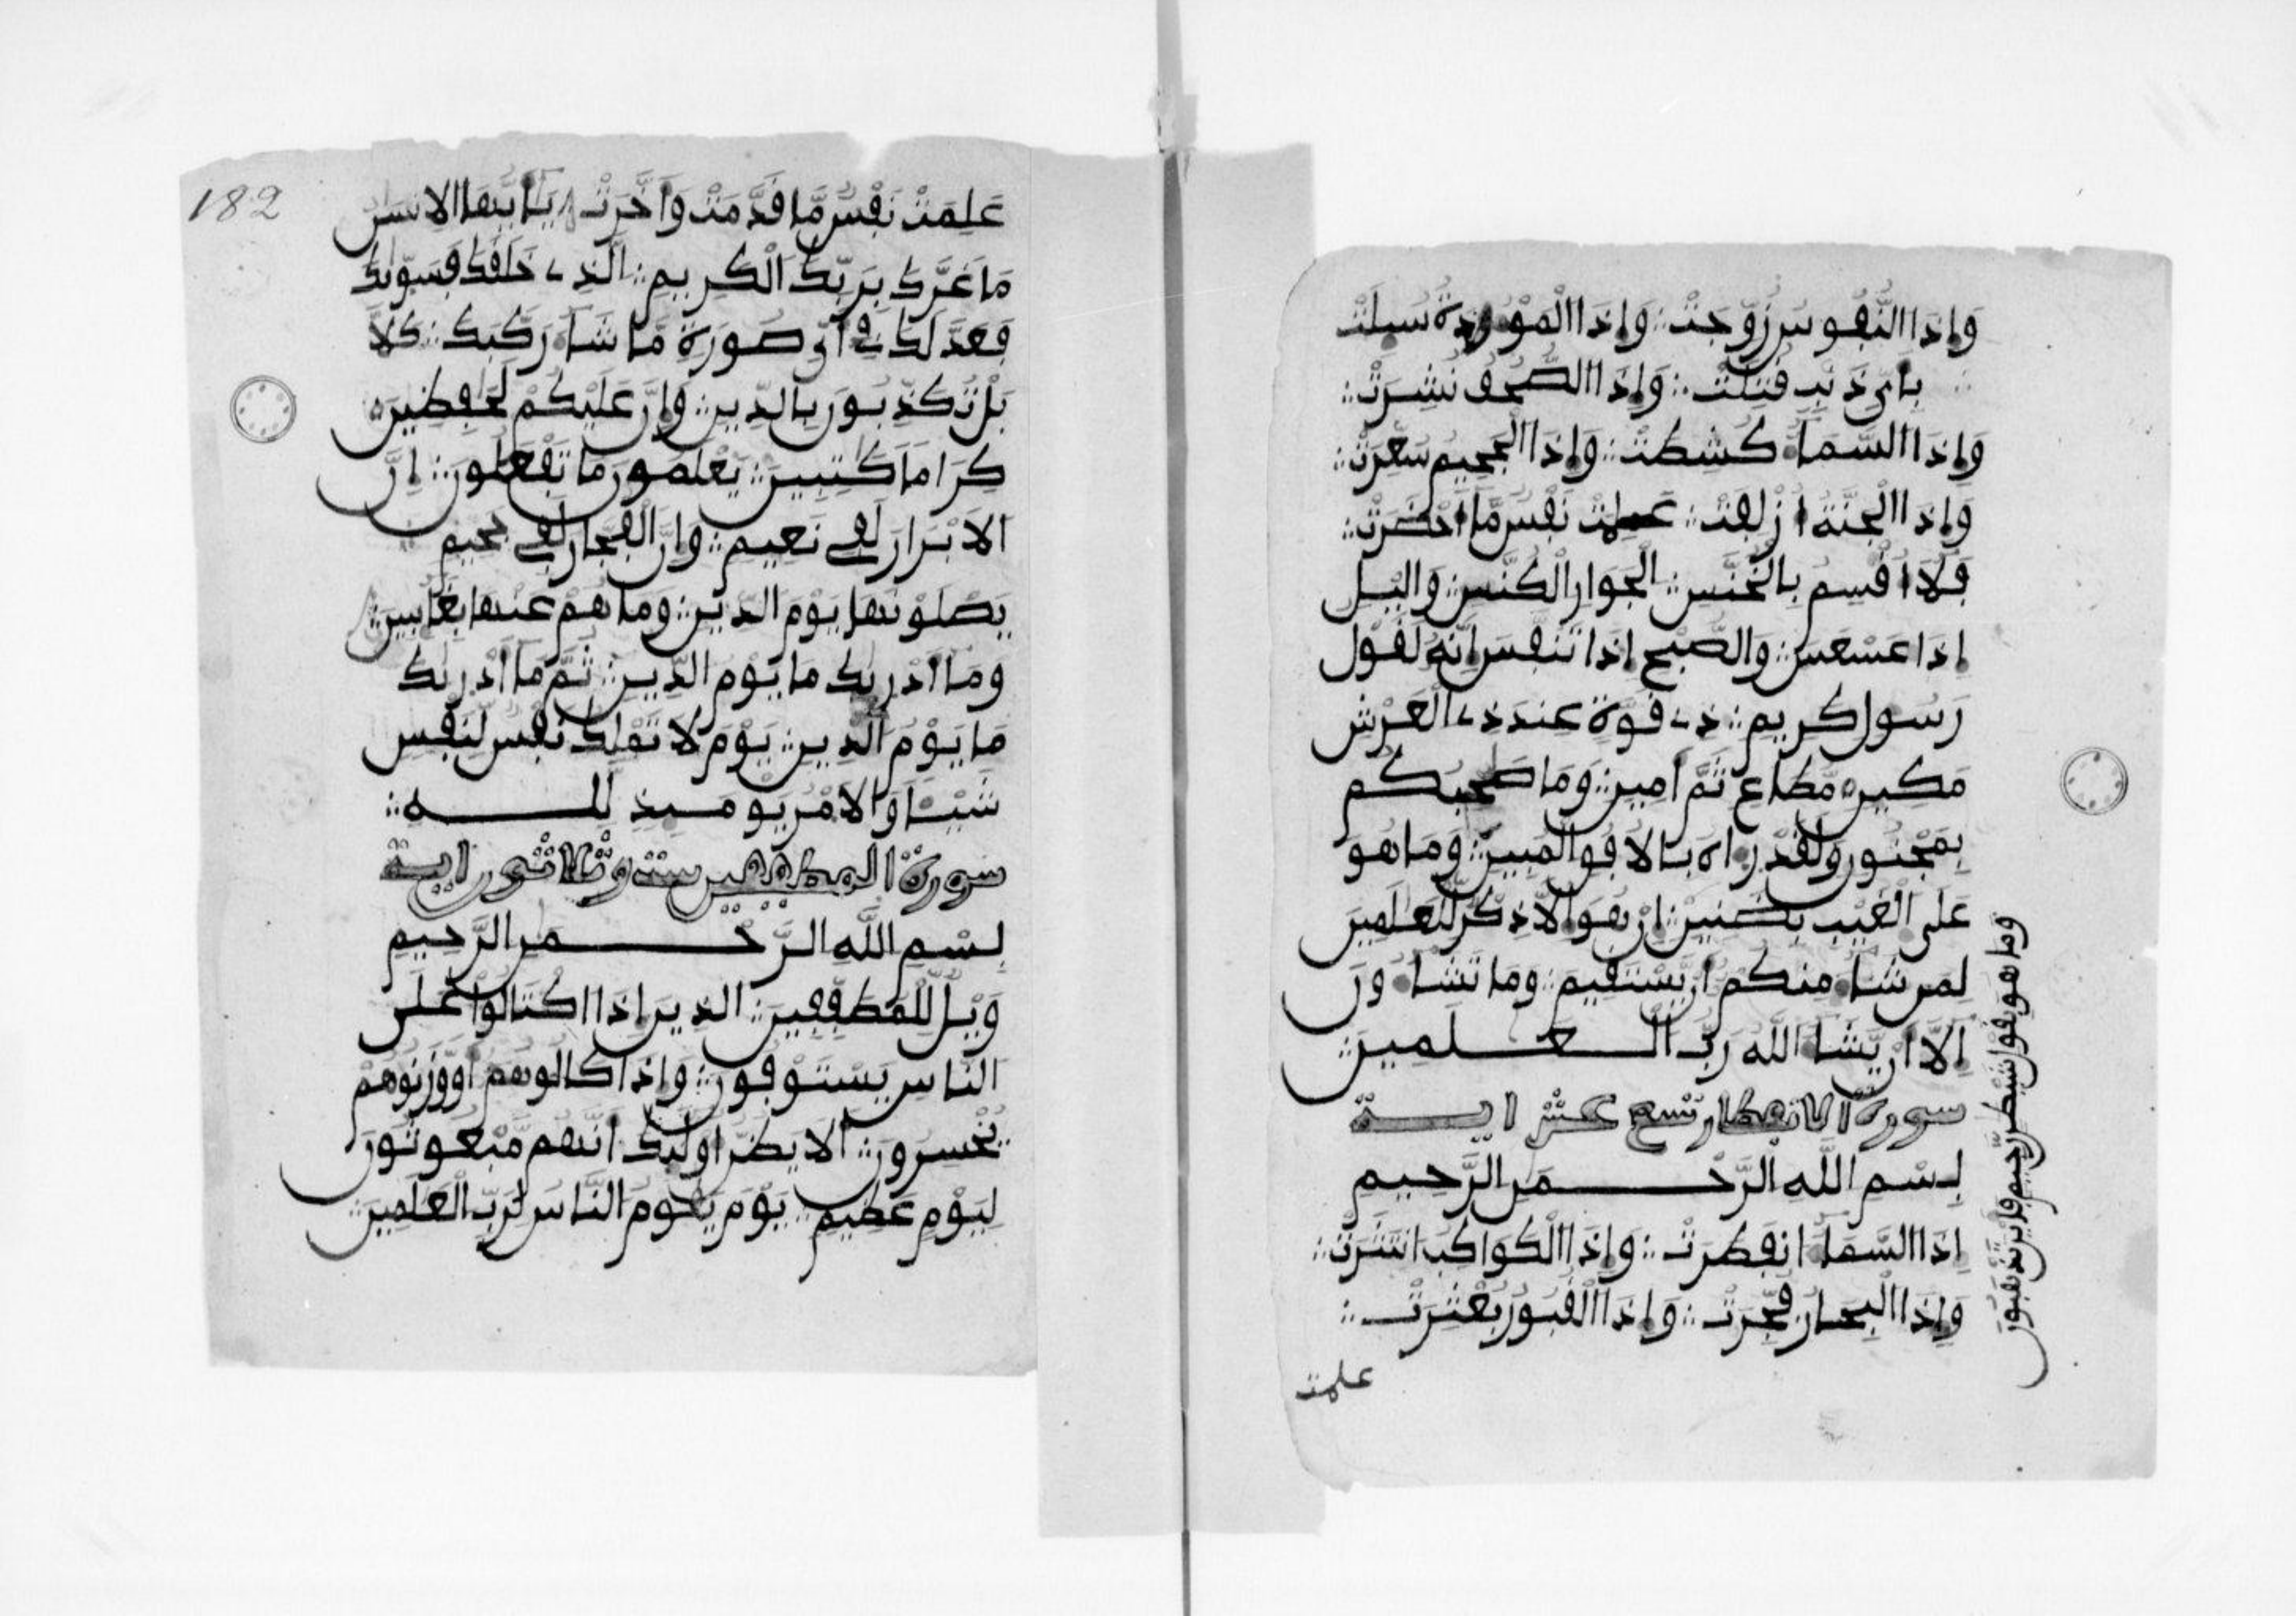 وَإِذَا النُّفُوسُ زُوِّجَتْ وَإِذَا الْمَوْءُدَةُ سُيِلَتْ
بِأَيِّ ذَنْبٍ قُتِلَتْ وَإِذَا الصُّحُفُ نُشِرَتْ
وَإِذَا السَّمَاءُ كُشِطَتْ وَإِذَا الْجَحِيمُ سُعِّرَتْ
وَإِذَا الْجَنَّةُ أُزْلِفَتْ عَلِمَتْ نَفْسٌ مَّا أَحْضَرَتْ
فَلَا أُقْسِمُ بِالْخُنَّسِ الْجَوَارِ الْكُنَّسِ وَاليْلِ
إِذَا عَسْعَسَ وَالصُّبْحِ إِذَا تَنَفَّسَ إِنَّهُ لَقَوْلُ
رَسُولٍ كَرِيمٍ ذِي قُوَّةٍ عِندَ ذِي الْعَرْشِ
مَكِينٍ مُّطَاعٍ ثَمَّ أَمِينٍ وَمَا صَحِبُكُم
بِمَجْنُونٍ وَلَقَدْ رَءَاهُ بِالْأُفُقِ الْمُبِينِ وَمَا هُوَ
عَلَى الْغَيْبِ بِضَنِينٍ إِنْ هُوَ إِلَّا ذِكْرٌ لِّلْعَلَمِينَ
لِمَن شَاءَ مِنكُمْ أَن يَّسْتَقِيمَ وَمَا تَشَاءُونَ
إِلَّا أَن يَّشَاءَ اللَّهُ رَبُّ الْعَلَمِينَ
سورة الانفطار تسع عشر اية
بِسْمِ اللَّهِ الرَّحْمَنِ الرَّحِيمِ
إِذَا السَّمَاءُ انفَطَرَتْ وَإِذَا الْكَوَاكِبُ انتَثَرَتْ
وَإِذَا الْبِحَارُ فُجِّرَتْ وَإِذَا الْقُبُورُ بُعْثِرَتْ
علمت
وما هو بقول شيطن رجيم فاين تذهبون
182
عَلِمَتْ نَفْسٌ مَّا قَدَّمَتْ وَأَخَّرَتْ يَا أَيُّهَا الْإِنسَنُ
مَا غَرَّكَ بِرَبِّكَ الْكَرِيمِ الَّذِي خَلَقَكَ فَسَوَّيكَ
فَعَدَّلَكَ فِي أَيِّ صُورَةٍ مَّا شَاءَ رَكَّبَكَ كَلَّا
بَلْ تُكَذِّبُونَ بِالدِّينِ وَإِنَّ عَلَيْكُمْ لَحَفِظِينَ
كِرَامًا كَتِبِينَ يَعْلَمُونَ مَا تَفْعَلُونَ إِنَّ
الْأَبْرَارَ لَفِي نَعِيمٍ وَإِنَّ الْفُجَّارَ لَفِي جَحِيمٍ
يَصْلَوْنَهَا يَوْمَ الدِّينِ وَمَا هُمْ عَنْهَا بِغَايِبِينَ
وَمَا أَدْرَيكَ مَا يَوْمُ الدِّينِ ثُمَّ مَا أَدْرَيكَ
مَا يَوْمُ الدِّينِ يَوْمَ لَا تَمْلِكُ نَفْسٌ لِّنَفْسٍ
شَيْئًا وَالْأَمْرُ يَوْمَيِذٍ لِّلَّهِ
سورة المطففين ست وثلاثون اية
بِسْمِ اللَّهِ الرَّحْمَنِ الرَّحِيمِ
وَيْلٌ لِّلْمُطَفِّفِينَ الَّذِينَ إِذَا اكْتَالُوا عَلَى
النَّاسِ يَسْتَوْفُونَ وَإِذَا كَالُوهُمْ أَو وَّزَنُوهُمْ
يُخْسِرُونَ أَلَا يَظُنُّ أُولَيِكَ أَنَّهُم مَّبْعُوثُونَ
لِيَوْمٍ عَظِيمٍ يَوْمَ يَقُومُ النَّاسُ لِرَبِّ الْعَلَمِينَ